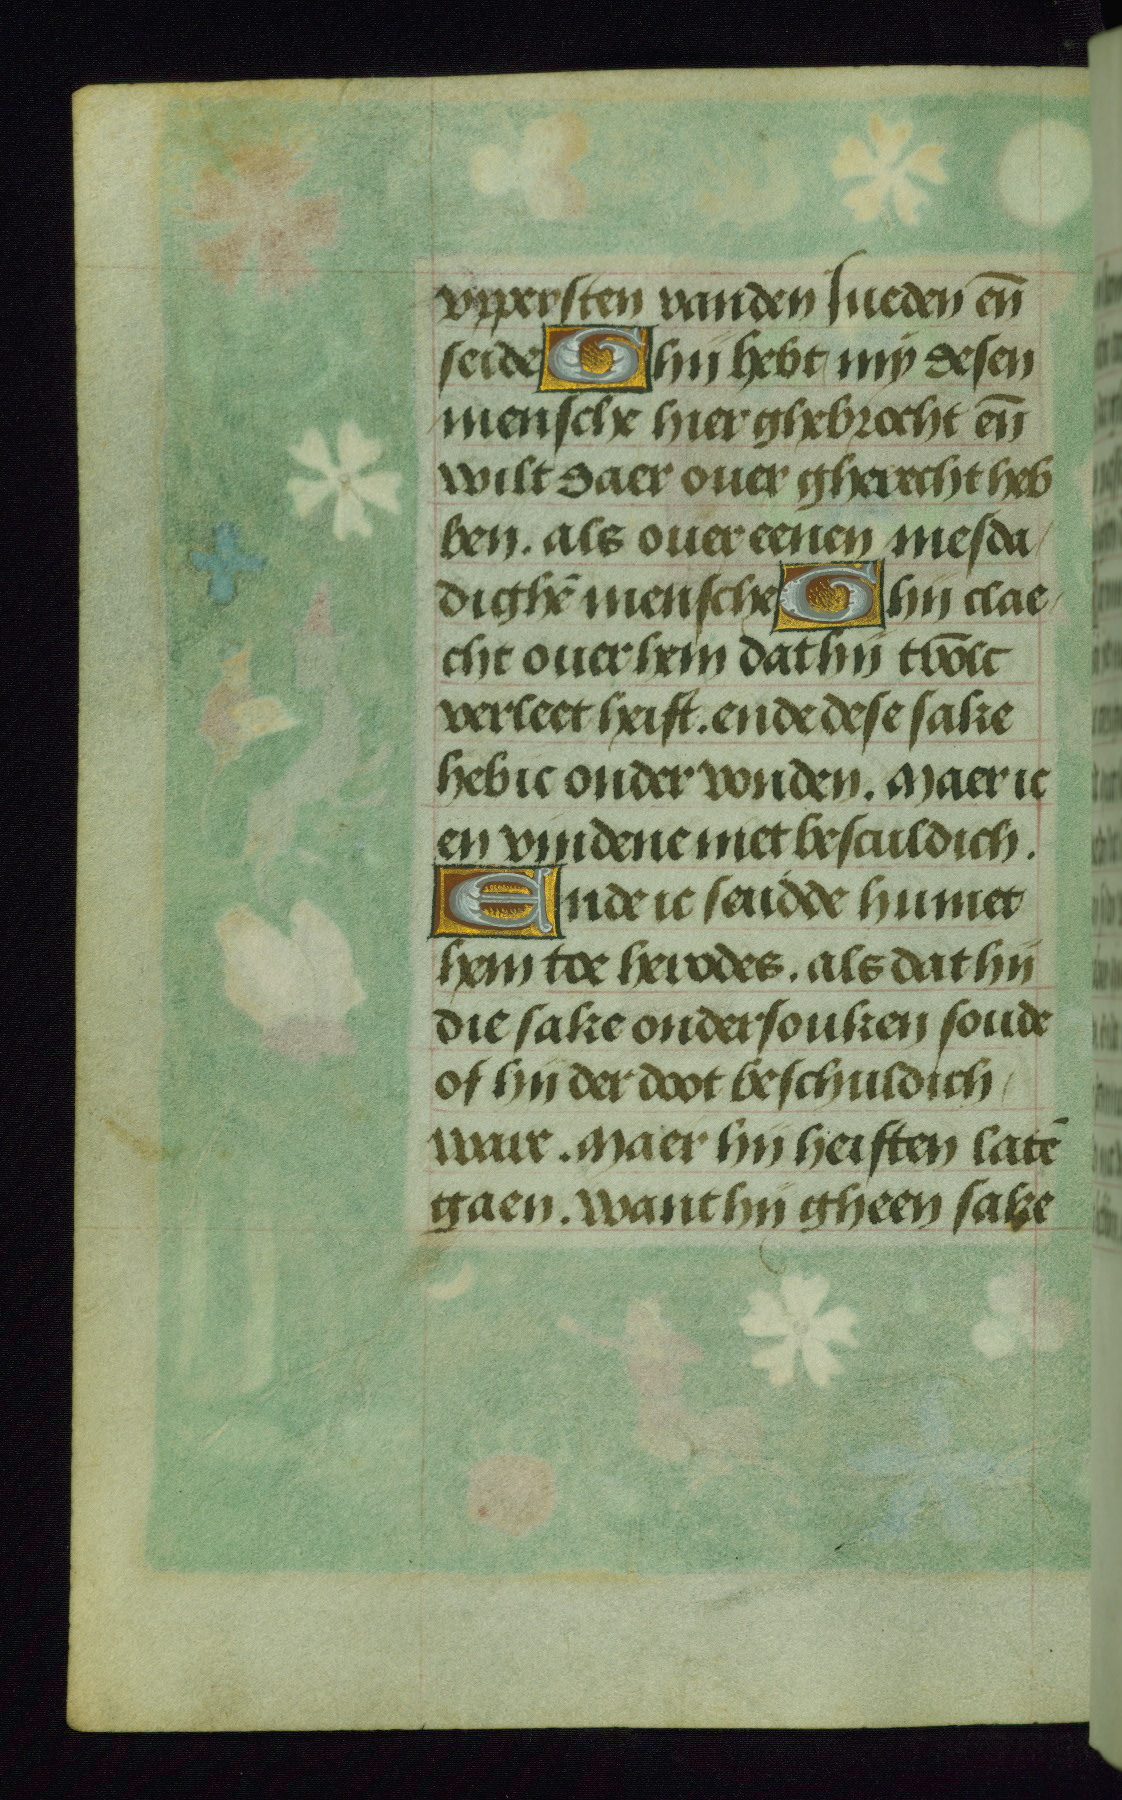 vppersten vanden Iueden en̄
seide Ghij hebt mij desen
mensche hier ghebrocht en̄
wilt daer ouer gherecht heb
ben. als ouer eenen mesda/
dighē mensche Ghij clae/
cht ouer hem dat hij tvōlc
verleet heift. ende dese sake
heb ic onder vonden. Maer ic
en vindene niet besculdich.
Ende ic seindde hu met
hem toe herodes. als dat hij
die sake ondersouken soude
of hij der doot beschuldich/
waire. Maer hij heiften latē
gaen. want hij gheen sake